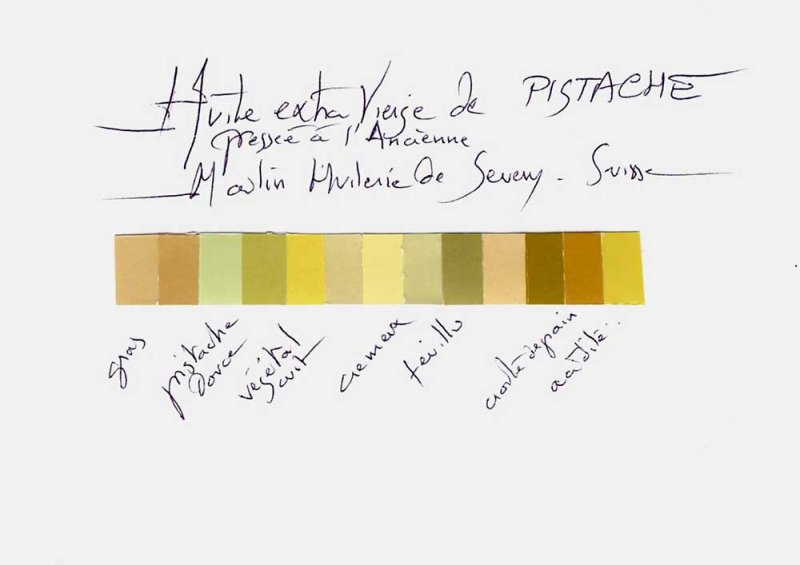 Huile extra Vierge de PISTACHE
pressée à l'Ancienne
Moulin Huilerie de Severy - Suisse
gras
pistache
douce
végétal
cuit
crémeux
feuillu
croûte de pain
acidité..